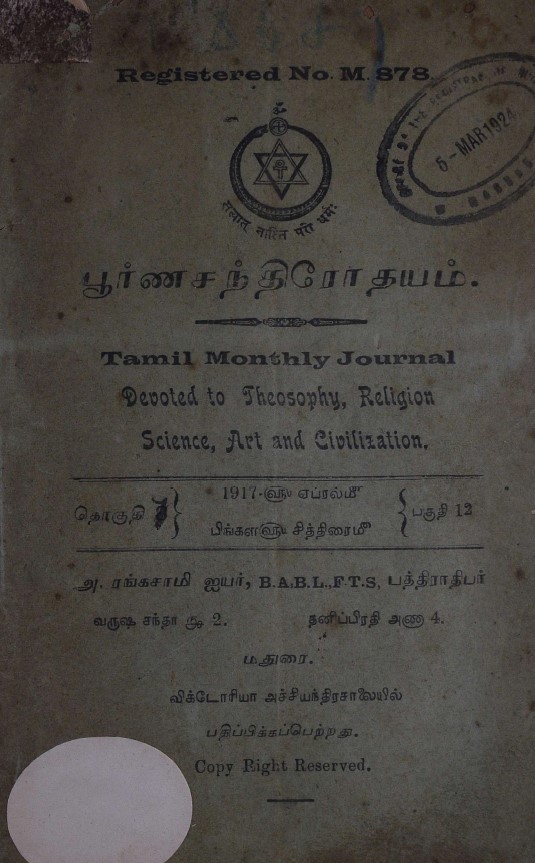 Registered No. M. 878.
5 - MAR 1924
सत्यात् नास्ति परो धर्मः
பூர்ணசந்திரோதயம்.
Tamil Monthly Journal
Devoted to Theosophy, Religion
Science, Art and Civilization.
தொகுதி 7 } 1917-௵ ஏப்ரல்௴ { பகுதி 12
பிங்கள௵ சித்திரை௴
அ. ரங்கசாமி ஐயர், B.A.B.L.,F.T.S, பத்திராதிபர்
வருஷ சந்தா ரூ 2. தனிப்பிரதி அணா 4.
மதுரை.
விக்டோரியா அச்சியந்திரசாலையில்
பதிப்பிக்கப்பெற்றது.
Copy Right Reserved.